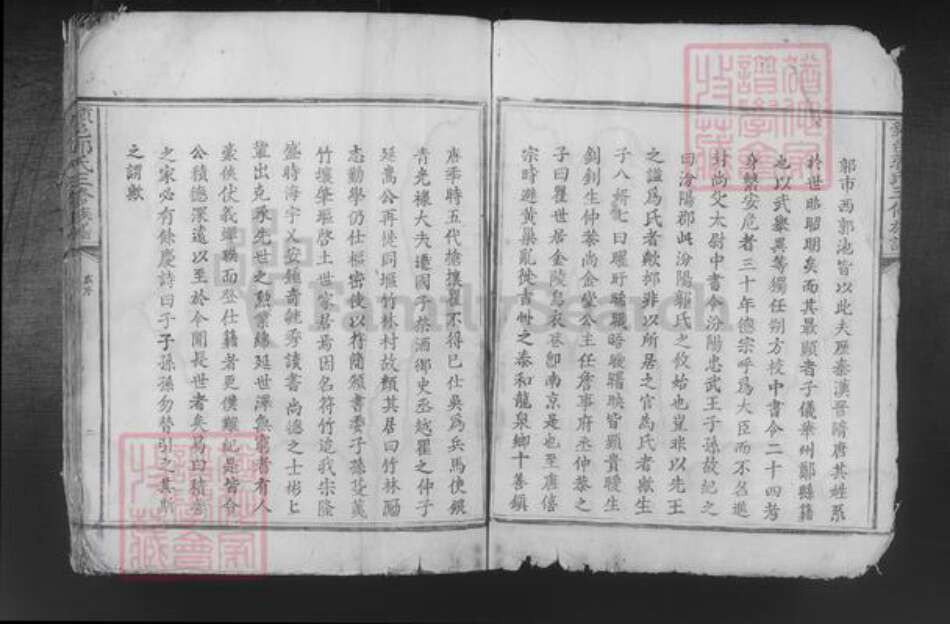 郭市西郭池皆以此夫歷秦漢晉隋唐其姓系
於世昭昭明矣而其最顯者子儀華州鄭縣籍
也以武舉異等獨任朔方校中書令二十四考
身繫安危者三十年德宗呼為大臣而不名進
封尚父太尉中書令汾陽忠武王子孫故紀之
曰汾陽郡此汾陽郭氏之攸始也豈非以先王
之謚為氏者歟抑非以所居之官為氏者歟生
子八 七曰曜旰晞 晤曖曙映皆顯貴曖生
釗釗生仲恭尚金堂公主任詹事府丞仲恭之
子曰瞿世居金陵烏衣巷卽南京是也至唐僖
宗時避黄巢亂徙吉州之泰和龍泉鄉十善鎮
唐季時五代搶攘瞿不得已仕吳為兵馬使銀
青光祿大夫遷國子祭酒御史丞越瞿之仲子
延嵩公再徙同堰竹林村故顏其居曰竹林勵
志勤學仍仕樞密使以竹簡 書委子孫
竹壤肇堰啓土世家居焉因名符竹迨我宗隆
盛時海宇乂安鍾奇毓秀讀書尚德之士彬匕
輩出克承先世之勳業綿延世澤無窮者有人
豪俠伏義蟬聯而登仕籍者更僕難紀是皆令
公積德深遠以至於今閥長世者矣易曰積善
之家必有餘慶詩曰子子孫孫勿替引之其斯
之謂歟
FamilySearch